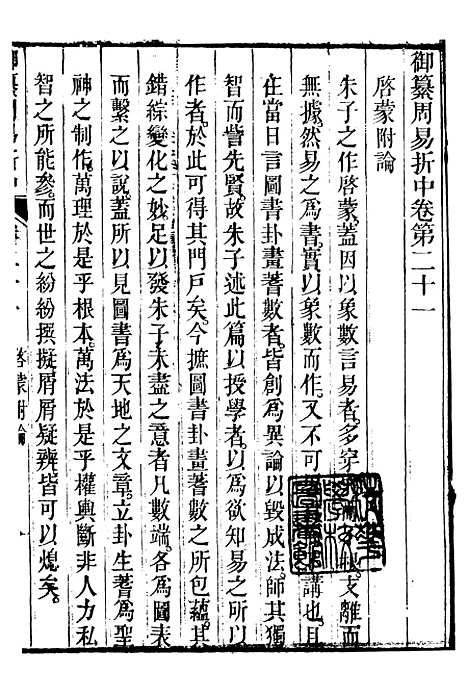 御纂周易折中卷第二十一
啓蒙附論
朱子之作啓蒙蓋因以象數言易者多穿支離而
無據然易之爲書實以象數而作又不可講也且
在當日言圖書卦畫蓍數者皆創爲異論以毀成法師其獨
智而訾先賢故朱子述此篇以授學者以爲欲知易之所
作者於此可得其門戶矣今摭圖書卦畫蓍數之所包蘊其
錯綜變化之妙足以發朱子未盡之意者凡數端各爲圖表
而繫之以說蓋所以見圖書爲天地之文章立卦生蓍爲聖
神之制作萬理於是乎根本萬法於是乎權輿斷非人力私
智之所能參而世之紛紛撰擬屑屑疑辨皆可以熄矣
御纂周易折中
啓蒙附論